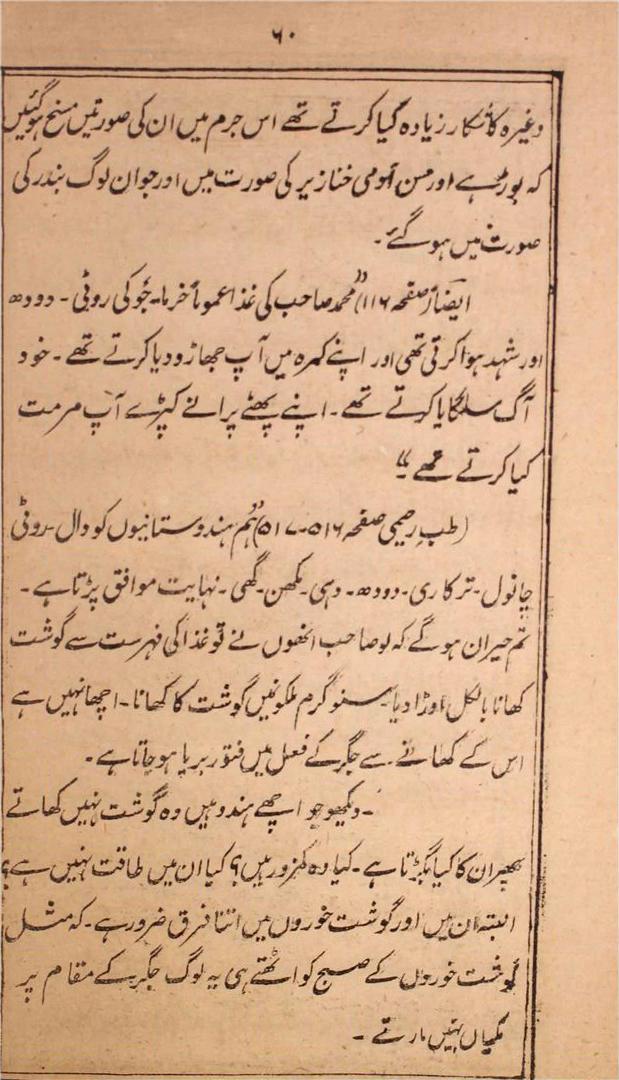 ۶۰
وغیرہ کا شکار زیادہ کیا کرتے تھے اس جرم میں ان کی صورتیں مسخ ہوگئیں
کہ بوڑہے اور مسن آدمی خنازیر کی صورت میں اور جوان لوگ بندر کی
صورت میں ہوگئے۔
ایضاً (صفحہ ۱۱۶) "محمد صاحب کی غذا عموماً خرما۔ جَو کی روٹی۔ دودھ
اور شہد ہوا کرتی تھی اور اپنے کمرہ میں آپ جھاڑو دیا کرتے تھے۔ خود
آگ سلگایا کرتے تھے۔ اپنے پھٹے پرانے کپڑے آپ مرمت
کیا کرتے تھے"۔
(طب رحیمی صفحہ ۵۱۶۔۵۱۷) "ہم ہندوستانیوں کو دال۔ روٹی
چانول۔ ترکاری۔ دودھ۔ دہی۔ مکھن۔ گھی۔ نہایت موافق پڑتا ہے۔
تم حیران ہوگے کہ لو صاحب انھوں نے تو غذا کی فہرست سے گوشت
کھانا بالکل اوڑا دیا۔ سنو گرم ملکونمیں گوشت کا کھانا۔ اچھا نہیں ہے
اس کے کھانے سے جگر کے فعل میں فتور برپا ہوجاتا ہے۔
۔دیکھو جو اچھے ہندو ہیں وہ گوشت نہیں کھاتے
پھر ان کا کیا بگڑتا ہے۔ کیا وہ کمزور ہیں؟ کیا ان میں طاقت نہیں ہے؟
البتہ ان میں اور گوشت خوروں میں اتنا فرق ضرور ہے۔ کہ مثل
گوشت خوروں کے صبح کو اٹھتے ہی یہ لوگ جگر کے مقام پر
مکیاں نہیں مارتے۔